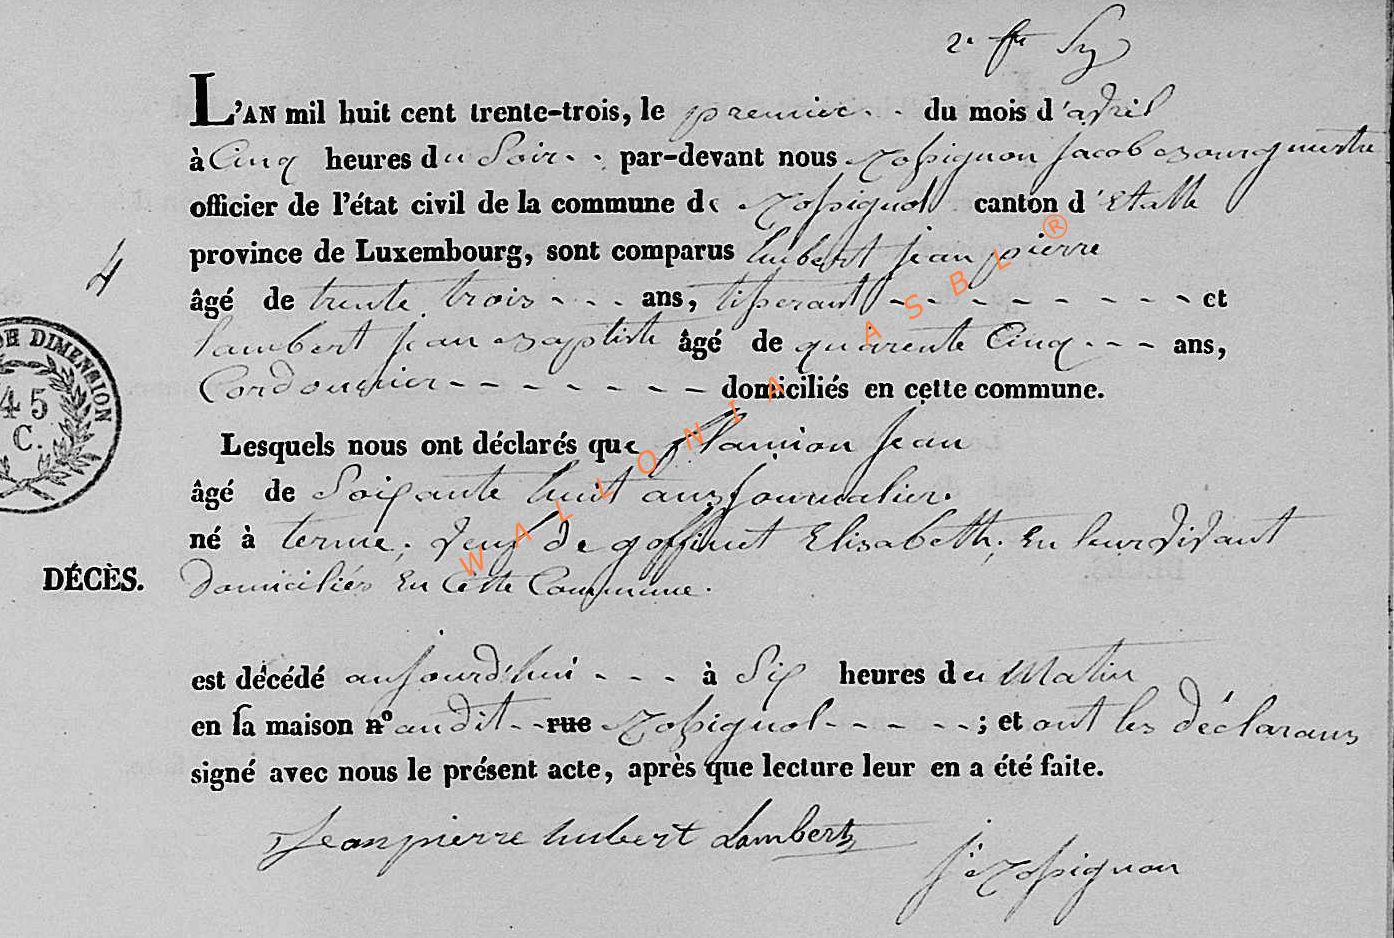 2e
L'AN mil huit cent trente-trois, le premier - - du mois d'avril
à Cinq heures du Soir - - par-devant nous Rossignon Jacob Bourguemestre
officier de l'état civil de la commune de Rossignol canton d'Etalle
province de Luxembourg, sont comparus hubert jean pierre
4
âgé de trente trois - - - ans, tisserant - - - - - - - - et
lambert jean Baptiste âgé de quarente Cinq - - - ans,
Cordouguier - - - - - - - domiciliés en cette commune.
Lesquels nous ont déclarés que flamion Jean
âgé de Soixante huit ans journalier.
né à termes, veuf de goffinet Elisabeth, En leur vivant
DÉCÈS. domiciliés En Cette Commune.
est décédé aujourd'hui - - - à Six heures du Matin
en sa maison n° audit - - rue Rossignol - - - - - ; et ont les déclarans
signé avec nous le présent acte, après que lecture leur en a été faite.
Jeanpierre hubert Lambert
J. Rossignon
DIMENSION
45
C.
WALLONIA ASBL®